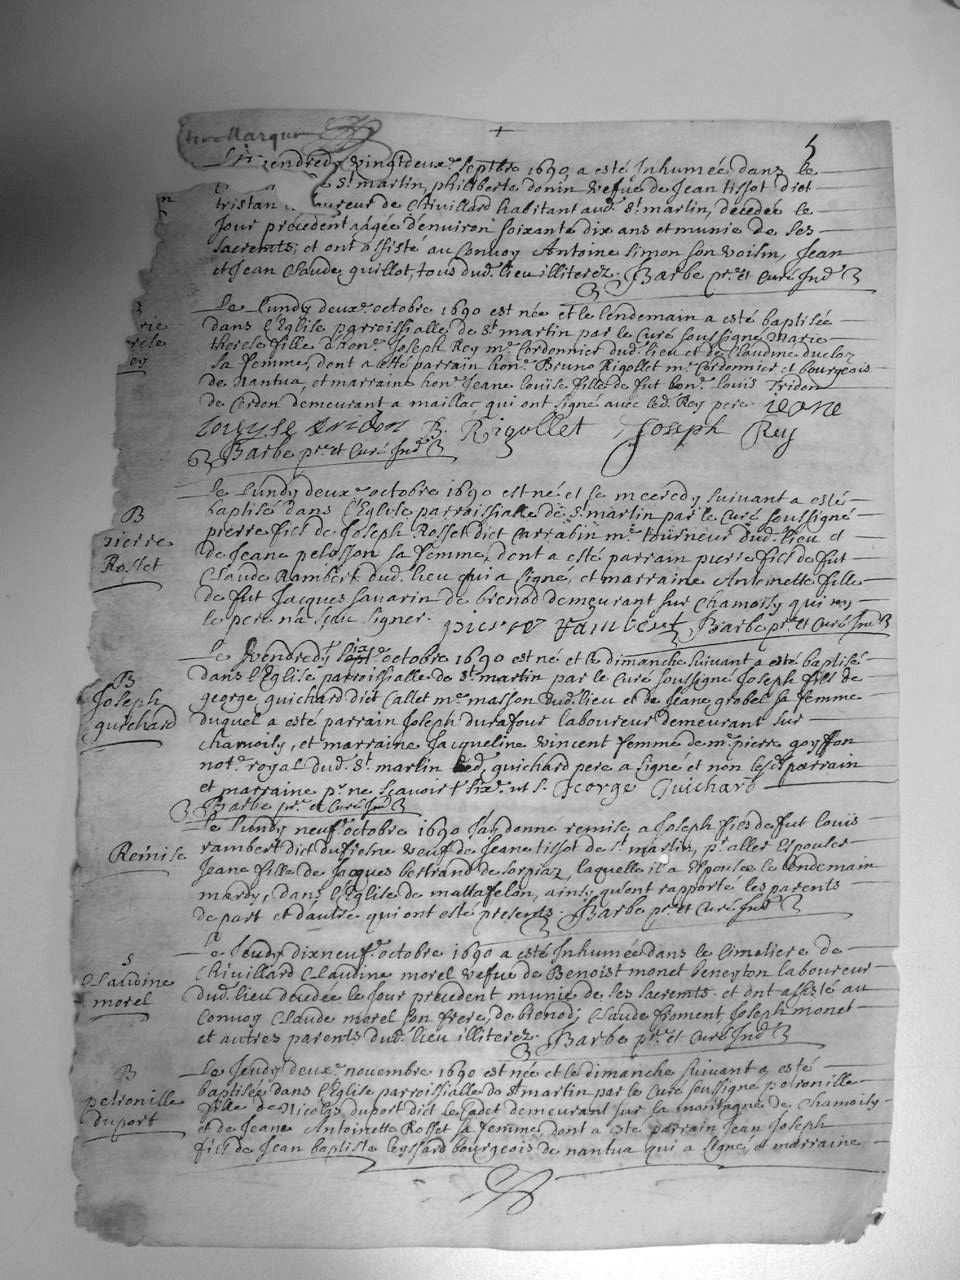 5
Vendredy vingtdeux.e septbre 1690 a esté Inhumée dans le
St martin, philiberte donin vefue de Jean tissot dict
tristan laboureur de Chivillard habitant aud. St martin, decedée le
Jour précédent aagée d'environ soixante dix ans et munie de ses
sacremts; et ont assisté au Convoy Antoine simon son voisin, Jean
et Jean Claude guillot, tous dud. lieu illiterez. Barbe pr. et Curé Ind.
Le Lundy deux.e octobre 1690 est née et le lendemain a esté baptisée
dans l'Eglise parroissialle de St martin par le Curé soussigné Marie
therese fille d'hon. Joseph Rey m.e Cordonnier dud. lieu et de Claudine ducloz
sa femme, dont a esté parrain hon. Bruno Rigollet m.e Cordonnier et bourgeois
de Nantua, et marraine hon. Jeane louise fille de fut hon. louis Tridon
de Cordon demeurant a maillac, qui ont signé avec led. Rey pere. ieane
Louyse tridon B. Rigollet Joseph Rey
Barbe pr. et Curé Ind.
B
pierre
Rosset
Le Lundy deux.e octobre 1690 est né et le mecredy suivant a esté
baptisé dans l'Eglise parroissialle de St martin par le Curé soussigné
pierre fils de Joseph Rosset dict Carrabin m.e tourneur dud. lieu et
de Jeane pelosson sa femme, dont a esté parrain pierre fils de fut
Claude Rambert dud. lieu qui a signé, et marraine Antoinette fille
de fut Jacques savarin de brenod demeurant sur Chamoisy qui ny
le pere n'a sceu signer. pierre Rambert, Barbe pr. et Curé Ind.
B
Joseph
guichard
Le Vendredy six.e octobre 1690 est né et le dimanche suivant a esté baptisé
dans l'Eglise parroissialle de St martin par le Curé soussigné Joseph fils de
george guichard dict Callet m.e masson dud. lieu et de Jeane grobel sa femme
duquel a esté parrain Joseph durafour laboureur demeurant sur
chamoisy, et marraine Jacqueline vincent femme de m.e pierre goyffon
not.e royal dud. St martin led. guichard pere a signé et non lesd. parrain
et marraine pr. ne sçavoir George Guichard
Barbe pr. et Curé Ind.
Remise
Le Lundy neuf.e octobre 1690 Jay donné remise a Joseph fils de fut louis
rambert dict dufresne veuf de Jeane tissot de St martin, pr. aller Espouser
Jeane fille de Jacques bertrand de sorpiaz, laquelle il a Espousée le lendemain
mardy, dans l'Eglise de mattafelon, ainsy qu'ont rapporté les parents
de part et d'autre qui ont esté presents. Barbe pr. et Curé Ind.
S
Claudine
morel
Le Jeudy dixneuf.e octobre 1690 a esté Inhumée dans le Cimetiere de
Chivillard Claudine morel vefue de Benoist monet beneyton laboureur
dud. lieu decedée le Jour précédent munie de ses sacremts. et ont assisté au
Convoy Claude morel son frere, de brenod; Claude froment Joseph monet
et autres parents dud. lieu illiterez. Barbe pr. et Curé Ind.
B
petronille
duport
Le Jeudy deux.e novembre 1690 est née et le dimanche suivant a esté
baptisée dans l'Eglise parroissialle de St martin par le Curé soussigné petronille
fille de Nicolas duport dict le Cadet demeurant sur la montagne de Chamoisy
et de Jeane Antoinette Rosset sa femme dont a esté parrain Jean Joseph
fils de Jean baptiste leyssard bourgeois de nantua qui a signé, et marraine